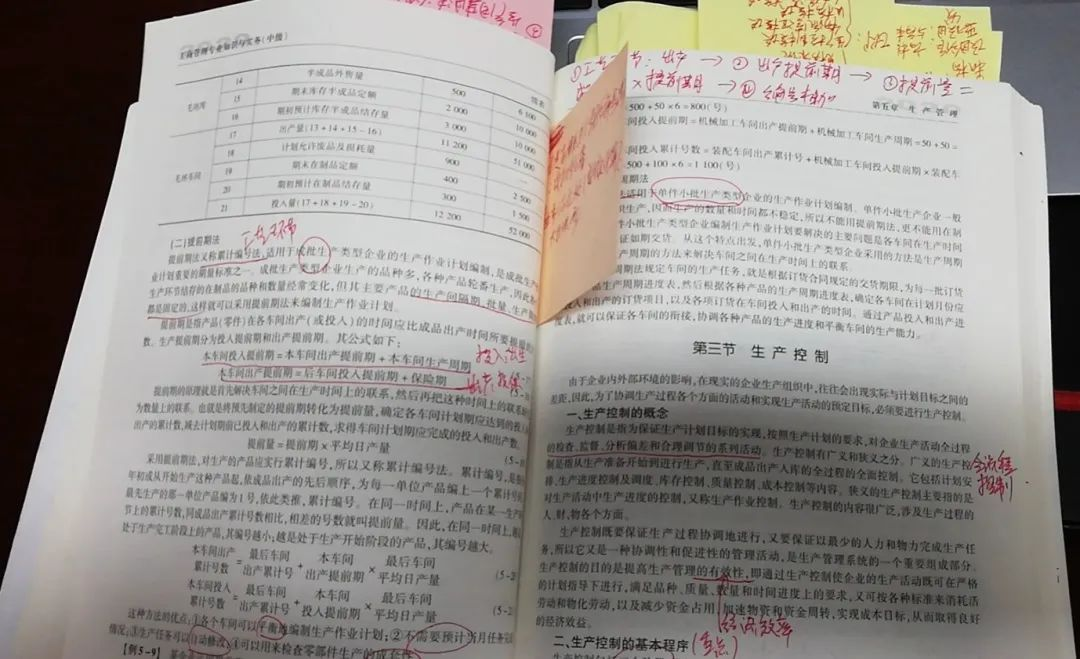 工商管理专业知识与实务(中级)
续表
14 半成品外售量 500 6 100
毛坯库 15 期末库存半成品定额 2 000 10 000
16 期初预计库存半成品结存量 3 000 10 000
17 出产量(13+14+15-16) 11 200 51 000
18 计划允许废品及损耗量 900 —
毛坯车间 19 期末在制品定额 400 2 500
20 期初预计在制品结存量 300 1 500
21 投入量(17+18+19-20) 12 200 52 000
(二)提前期法
提前期法又称累计编号法,适用于成批生产类型企业的生产作业计划编制,是成批生产
业计划重要的期量标准之一。成批生产类型企业生产的品种多,各种产品轮番生产,因此各
生产环节结存的在制品的品种和数量经常变化,但其主要产品的生产间隔期、批量、生产周期
都是固定的,这样就可以采用提前期法来编制生产作业计划。
提前期是指产品(零件)在各车间出产(或投入)的时间应比成品出产时间所要提前的
数。生产提前期分为投入提前期和出产提前期。其公式如下:
本车间投入提前期=本车间出产提前期+本车间生产周期
本车间出产提前期=后车间投入提前期+保险期
提前期的原理就是首先解决车间之间在生产时间上的联系,然后再把这种时间上的联系
为数量上的联系。也就是将预先制定的提前期转化为提前量,确定各车间计划期应达到的投入
出产的累计数,减去计划期前已投入和出产的累计数,求得车间计划期应完成的投入和出产数。
提前量=提前期×平均日产量
采用提前期法,对生产的产品应实行累计编号,所以又称累计编号法。累计编号,是
年初或从开始生产这种产品起,依成品出产的先后顺序,为每一单位产品编上一个累计号码
最先生产的那一单位产品编为1号,依此类推,累计编号。在同一时间上,产品在某一生产
上的累计号数,同成品出产累计号数相比,相差的号数就叫提前量。因此,在同一时间上,越
处于生产完工阶段上的产品,其编号越小;越是处于生产开始阶段的产品,其编号越大。
本车间出产累计号数=最后车间出产累计号+本车间出产提前期×最后车间平均日产量 (5-2
本车间投入累计号数=最后车间出产累计号+本车间投入提前期×最后车间平均日产量 (5-2
这种方法的优点:①各个车间可以平衡地编制生产作业计划;②不需要预计当月任务
情况;③生产任务可以自动修改;④可以用来检查零部件生产的成套性
【例5-9】
出产提前期
提前期
第五章 生产管理
500+50×6=800(号)
间投入提前期=机械加工车间出产提前期+机械加工车间生产周期=50+50=
间投入累计号数=装配车间出产累计号+机械加工车间投入提前期×装配车
=500+100×6=1 100(号)
周期法
法适用于单件小批生产类型企业的生产作业计划编制。单件小批生产企业一般
织生产,因而生产的数量和时间都不稳定,所以不能用提前期法,更不能用在制
件小批生产类型企业编制生产作业计划要解决的主要问题是各车间在生产时间
证如期交货。从这个特点出发,单件小批生产类型企业采用的方法是生产周期
产周期的方法来解决车间之间在生产时间上的联系。
周期法规定车间的生产任务,就是根据订货合同规定的交货期限,为每一批订货
品生产周期进度表,然后根据各种产品的生产周期进度表,确定各车间在计划月份应
投入和出产的订货项目,以及各项订货在车间投入和出产的时间。通过产品投入和出产进
度表,就可以保证各车间的衔接,协调各种产品的生产进度和平衡车间的生产能力。
第三节 生产控制
由于企业内外部环境的影响,在现实的企业生产组织中,往往会出现实际与计划目标之间的
差距,因此,为了协调生产过程各个方面的活动和实现生产活动的预定目标,必须要进行生产控制。
一、生产控制的概念
生产控制是指为保证生产计划目标的实现,按照生产计划的要求,对企业生产活动全过程
的检查、监督、分析偏差和合理调节的系列活动。生产控制有广义和狭义之分。广义的生产控
制是指从生产准备开始到进行生产,直至成品出产入库的全过程的全面控制。它包括计划安
排、生产进度控制及调度、库存控制、质量控制、成本控制等内容。狭义的生产控制主要指的是
对生产活动中生产进度的控制,又称生产作业控制。生产控制的内容很广泛,涉及生产过程的
人、财、物各个方面。
全流程
控制
生产控制既要保证生产过程协调地进行,又要保证以最少的人力和物力完成生产任
务,所以它又是一种协调性和促进性的管理活动,是生产管理系统的一个重要组成部分。
生产控制的目的是提高生产管理的有效性,即通过生产控制使企业的生产活动既可在严格
的计划指导下进行,满足品种、质量、数量和时间进度上的要求,又可按各种标准来消耗活
劳动和物化劳动,以及减少资金占用,加速物资和资金周转,实现成本目标,从而取得良好
的经济效益。
二、生产控制的基本程序
(重点)